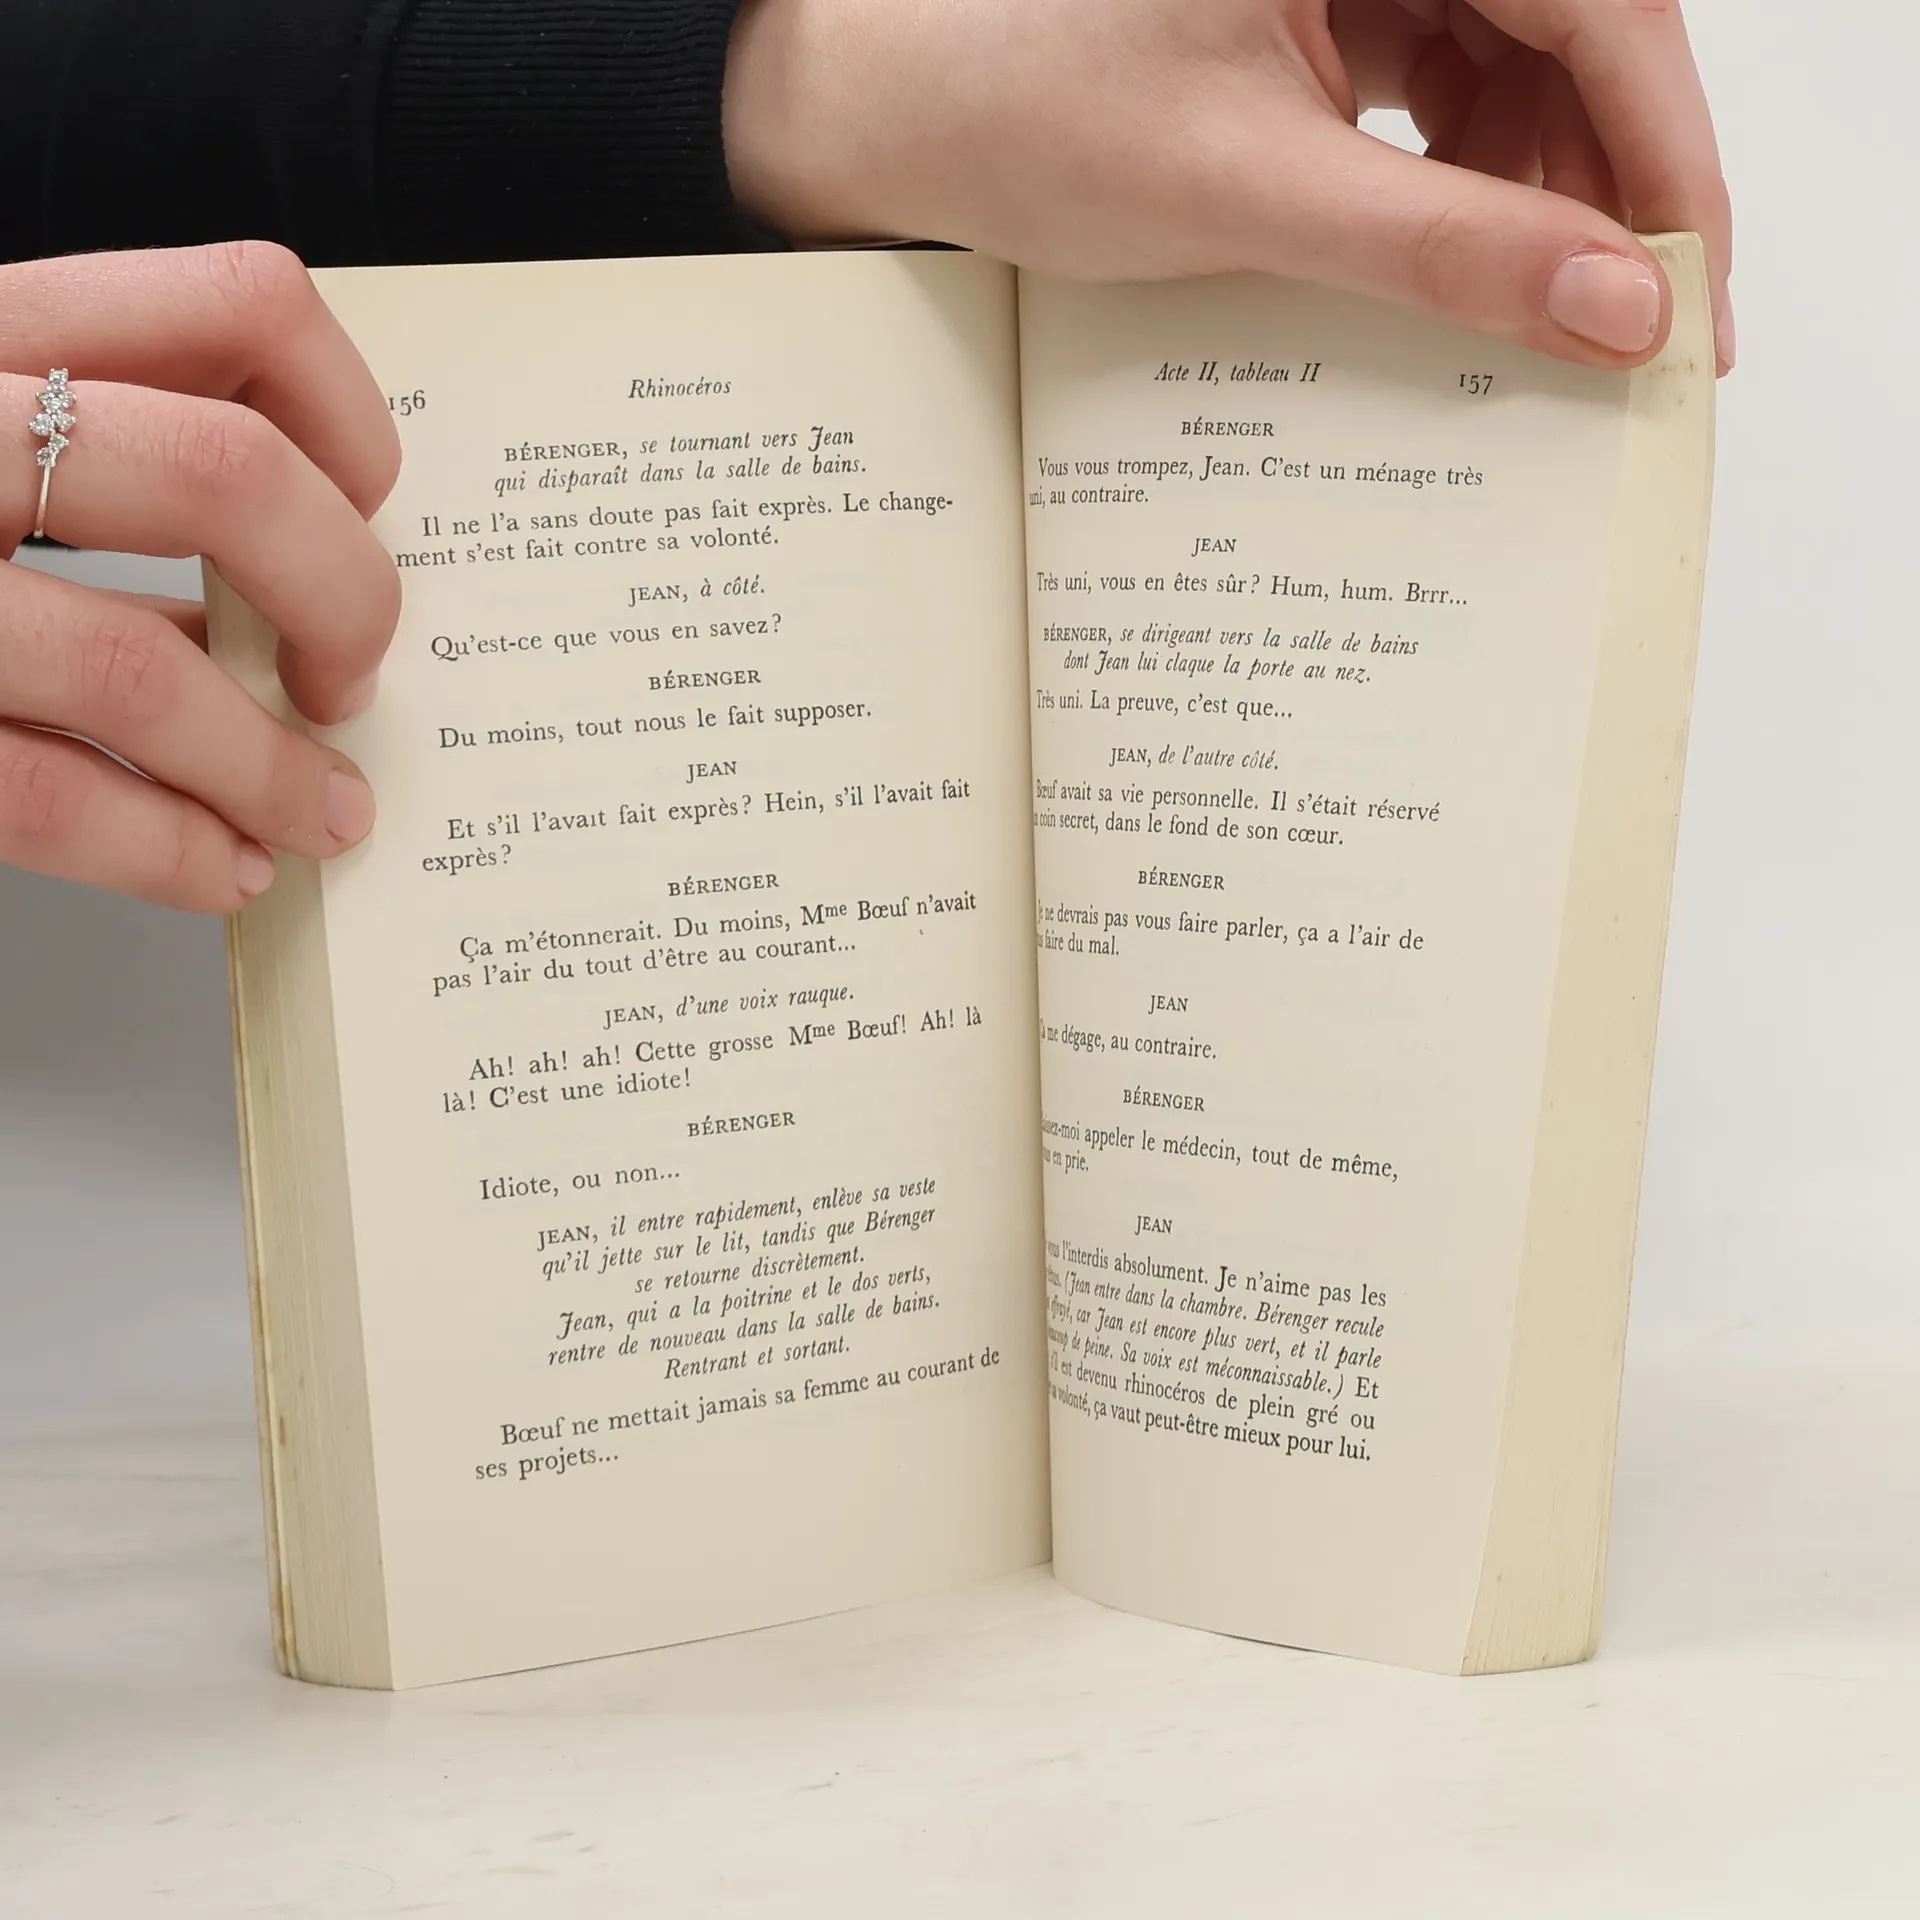 156
Rhinocéros
BÉRENGER, se tournant vers Jean
qui disparaît dans la salle de bains.
Il ne l'a sans doute pas fait exprès. Le change-
ment s'est fait contre sa volonté.
JEAN, à côté.
Qu'est-ce que vous en savez?
BÉRENGER
Du moins, tout nous le fait supposer.
JEAN
Et s'il l'avait fait exprès? Hein, s'il l'avait fait
exprès?
BÉRENGER
Ça m'étonnerait. Du moins, Mme Bœuf n'avait
pas l'air du tout d'être au courant...
JEAN, d'une voix rauque.
Ah! ah! ah! Cette grosse Mme Bœuf! Ah! là
là! C'est une idiote!
BÉRENGER
Idiote, ou non...
JEAN, il entre rapidement, enlève sa veste
qu'il jette sur le lit, tandis que Bérenger
se retourne discrètement.
Jean, qui a la poitrine et le dos verts,
rentre de nouveau dans la salle de bains.
Rentrant et sortant.
Bœuf ne mettait jamais sa femme au courant de
ses projets...
Acte II, tableau II
157
BÉRENGER
Vous vous trompez, Jean. C'est un ménage très
uni, au contraire.
JEAN
Très uni, vous en êtes sûr? Hum, hum. Brrr...
BÉRENGER, se dirigeant vers la salle de bains
dont Jean lui claque la porte au nez.
Très uni. La preuve, c'est que...
JEAN, de l'autre côté.
Bœuf avait sa vie personnelle. Il s'était réservé
coin secret, dans le fond de son cœur.
BÉRENGER
Je ne devrais pas vous faire parler, ça a l'air de
faire du mal.
JEAN
me dégage, au contraire.
BÉRENGER
appeler le médecin, tout de même,
en prie.
JEAN
l'interdis absolument. Je n'aime pas les
(Jean entre dans la chambre. Bérenger recule
car Jean est encore plus vert, et il parle
de peine. Sa voix est méconnaissable.) Et
est devenu rhinocéros de plein gré ou
volonté, ça vaut peut-être mieux pour lui.